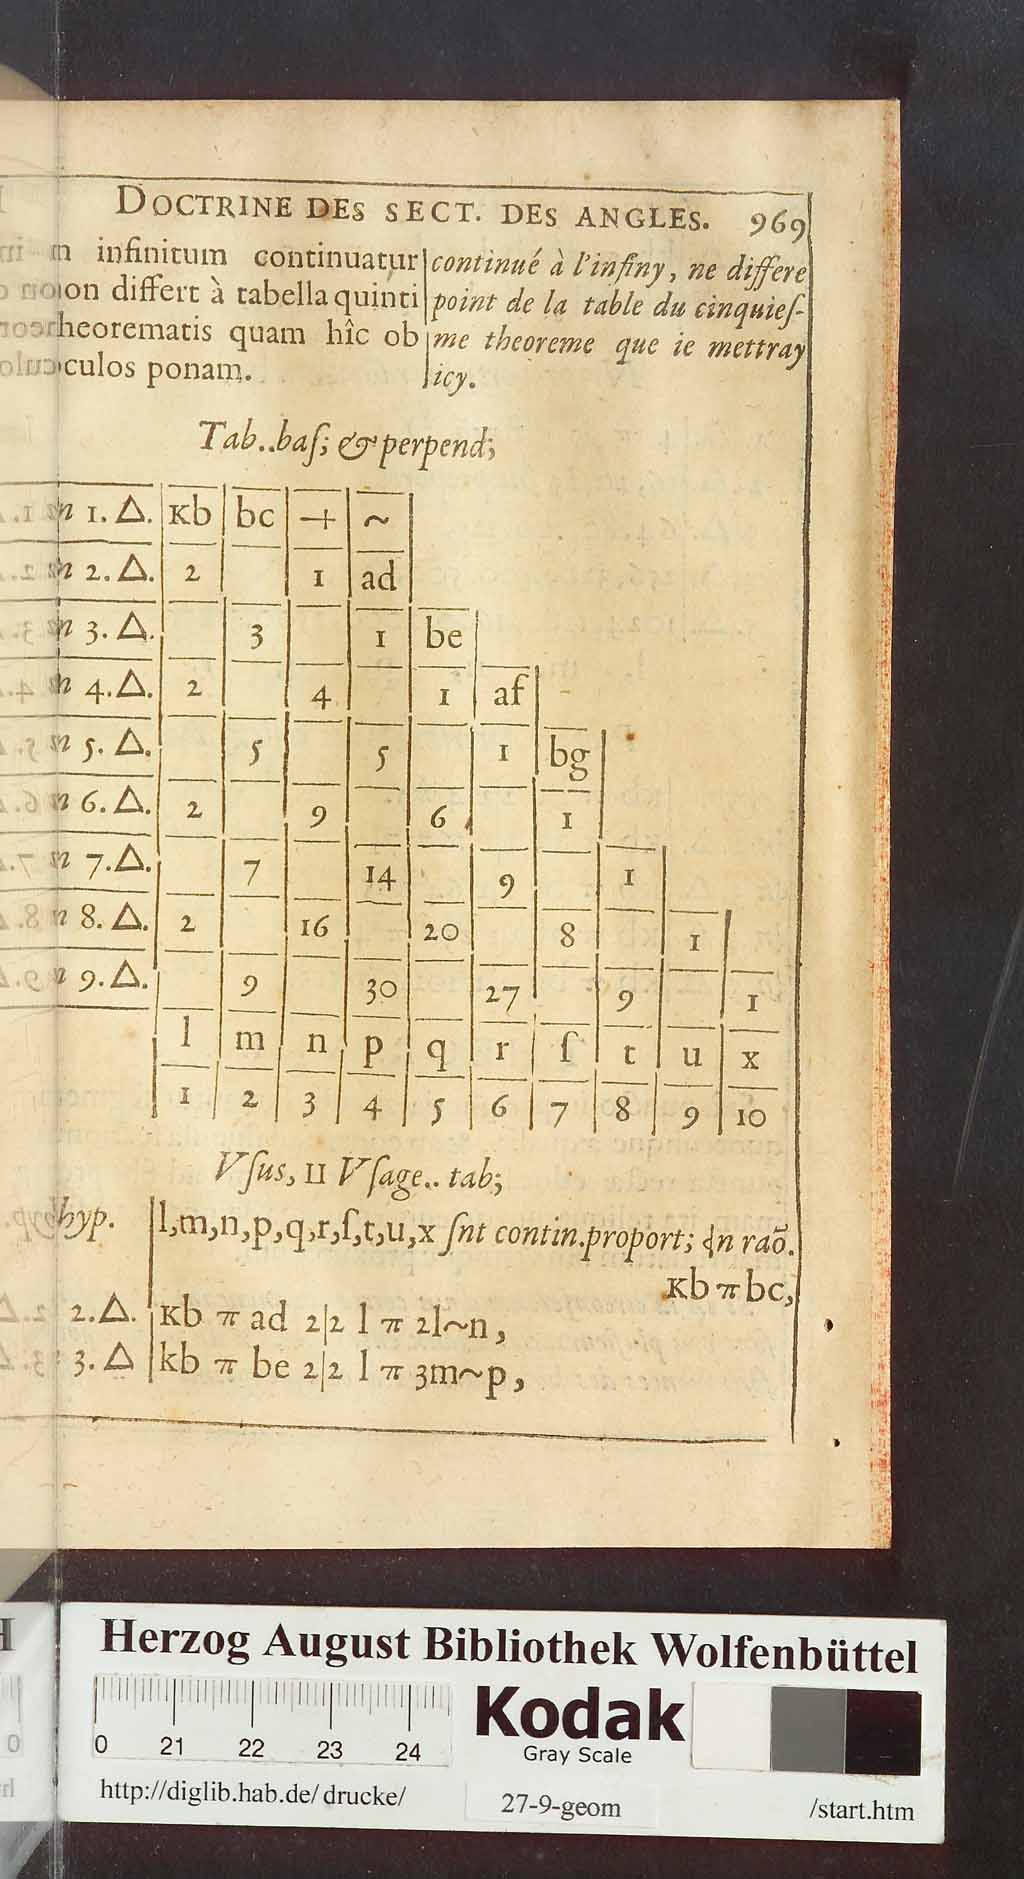 DOCTRINE DES SECT. DES ANGLES. 969
n infinitum continuatur
on differt à tabella quinti
heorematis quam hîc ob
culos ponam.
continué à l'infiny, ne differe
point de la table du cinquieſ-
me theoreme que ie mettray
icy.
Tab..baſ; & perpend;
n 1. △. | кb | bc | + | ~
n 2. △. | 2 | | 1 | ad
n 3. △. | | 3 | | 1 | be
n 4. △. | 2 | | 4 | | 1 | af
n 5. △. | | 5 | | 5 | | 1 | bg
n 6. △. | 2 | | 9 | | 6 | | 1
n 7. △. | | 7 | | 14 | | 9 | | 1
n 8. △. | 2 | | 16 | | 20 | | 8 | | 1
n 9. △. | | 9 | | 30 | | 27 | | 9 | | 1
l | m | n | p | q | r | ſ | t | u | x
1 | 2 | 3 | 4 | 5 | 6 | 7 | 8 | 9 | 10
Vſus, II Vſage.. tab;
hyp. | l,m,n,p,q,r,ſ,t,u,x ſnt contin.proport; n raõ.
кb π bc,
2.△. | кb π ad 2|2 l π 2l~n,
3. △ | kb π be 2|2 l π 3m~p,
Herzog August Bibliothek Wolfenbüttel
0 21 22 23 24
Kodak
Gray Scale
http://diglib.hab.de/drucke/
27-9-geom
/start.htm